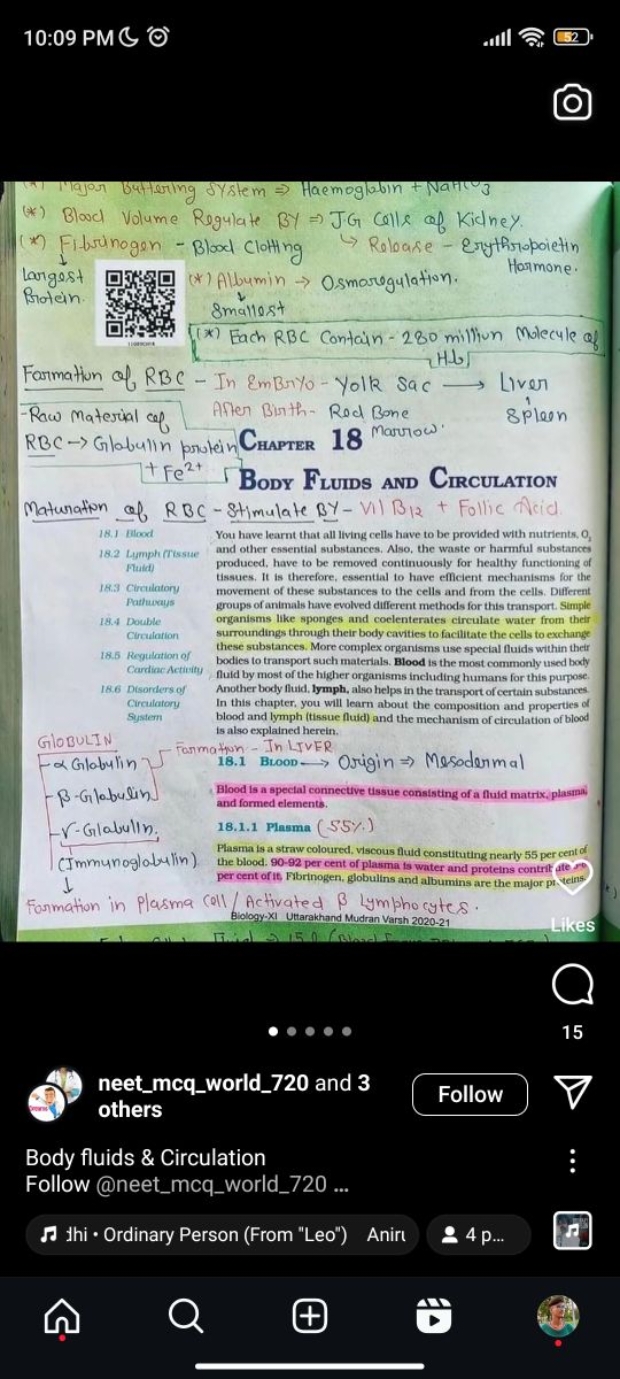 10:09 PM
52
(*) Major Buffering System ⇒ Haemoglobin + NaHCO3
(*) Blood Volume Regulate BY ⇒ JG Cells of Kidney.
(*) Fibrinogen - Blood Clotting
↳ Release - Erythropoietin Hormone.
↓
Largest Protein.
(*) Albumin → Osmoregulation.
↓
Smallest
(*) Each RBC Contain - 280 million Molecule of Hb
Formation of RBC - In EmBryo - Yolk Sac → Liver
Spleen
After Birth - Red Bone Marrow.
-Raw Material of
RBC → Globulin protein
+ Fe2+
CHAPTER 18
BODY FLUIDS AND CIRCULATION
Maturation of RBC - Stimulate BY - Vit B12 + Follic Acid.
18.1 Blood
18.2 Lymph (Tissue
Fluid)
18.3 Circulatory
Pathways
18.4 Double
Circulation
18.5 Regulation of
Cardiac Activity
18.6 Disorders of
Circulatory
System
You have learnt that all living cells have to be provided with nutrients, O2
and other essential substances. Also, the waste or harmful substances
produced, have to be removed continuously for healthy functioning of
tissues. It is therefore, essential to have efficient mechanisms for the
movement of these substances to the cells and from the cells. Different
groups of animals have evolved different methods for this transport. Simple
organisms like sponges and coelenterates circulate water from their
surroundings through their body cavities to facilitate the cells to exchange
these substances. More complex organisms use special fluids within their
bodies to transport such materials. Blood is the most commonly used body
fluid by most of the higher organisms including humans for this purpose.
Another body fluid, lymph, also helps in the transport of certain substances.
In this chapter, you will learn about the composition and properties of
blood and lymph (tissue fluid) and the mechanism of circulation of blood
is also explained herein.
GlOBULIN
Formation - In LIVER
-α Globulin
-β-Globulin
-γ-Globulin.
(Immunoglobulin)
↓
Formation in Plasma Cell / Activated β Lymphocytes.
18.1 BLOOD → Origin ⇒ Mesodermal
Blood is a special connective tissue consisting of a fluid matrix, plasma,
and formed elements.
18.1.1 Plasma (55%)
Plasma is a straw coloured, viscous fluid constituting nearly 55 per cent of
the blood. 90-92 per cent of plasma is water and proteins contribute
per cent of it. Fibrinogen, globulins and albumins are the major proteins.
Biology-XI Uttarakhand Mudran Varsh 2020-21
Likes
15
neet_mcq_world_720 and 3
others
Follow
Body fluids & Circulation
Follow @neet_mcq_world_720 ...
dhi • Ordinary Person (From "Leo") Aniru
4 p...